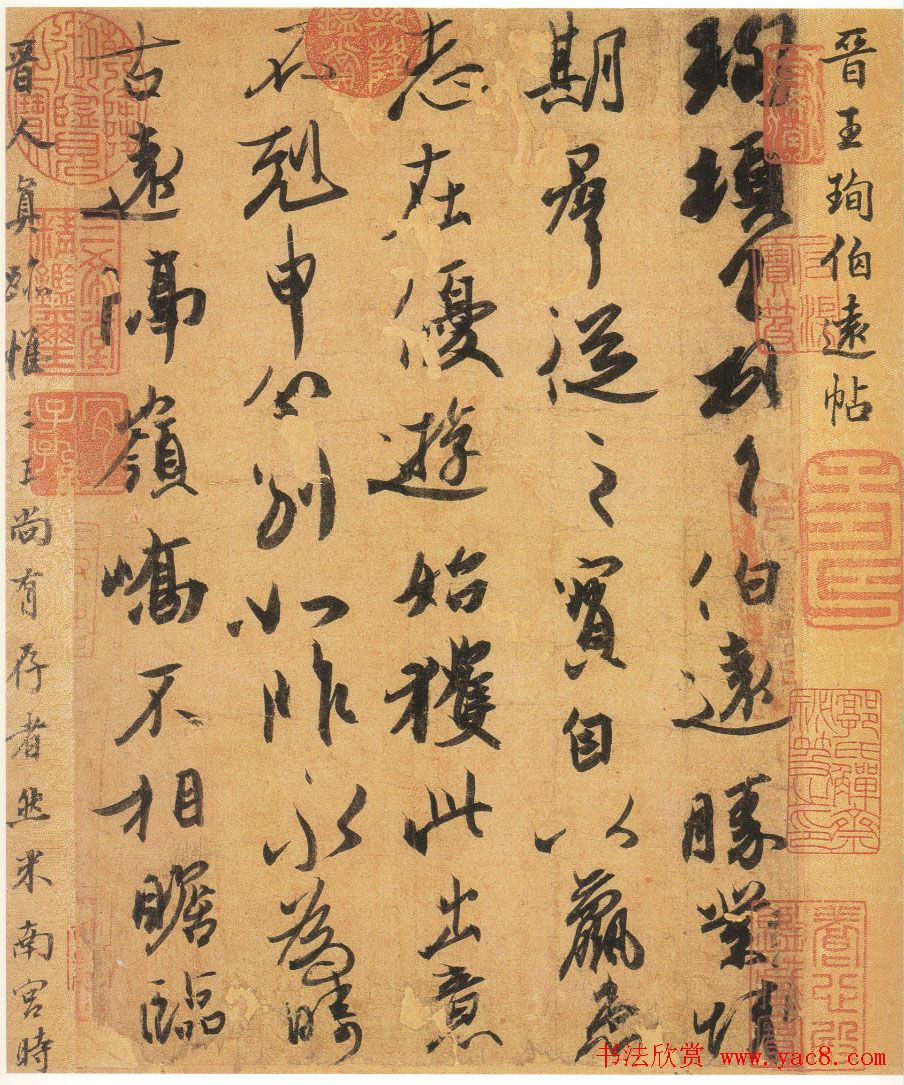 晉王珣伯遠帖
珣頓首頓首伯遠勝業情
期羣從之寶自以羸患
志在優遊始獲此出意
不剋申分別如昨永為疇
古遠隔嶺嶠不相瞻臨
晉人真跡惟二王尚有存者然米南宮時
乾隆鑑賞
三希堂精鑑璽
宜子孫
书法欣赏 www.yac8.com